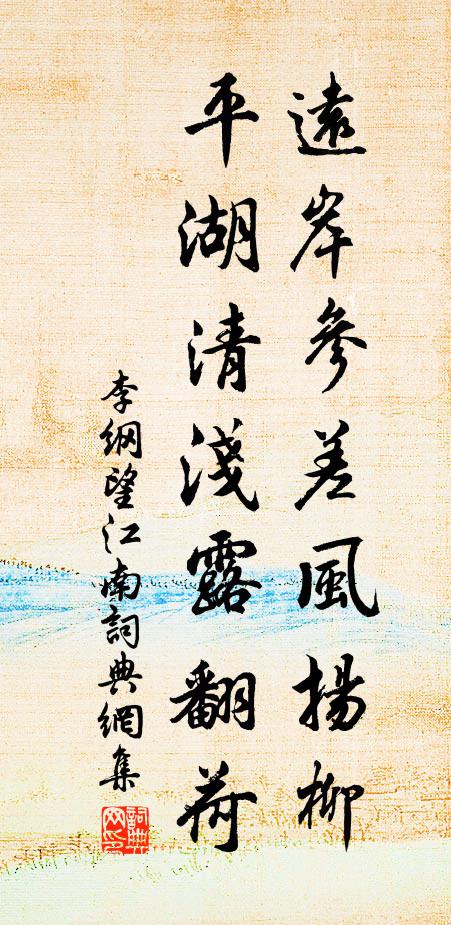 遠岸參差風揚柳
平湖清淺露翻荷
李綱望江南詞典網集
詞典網印